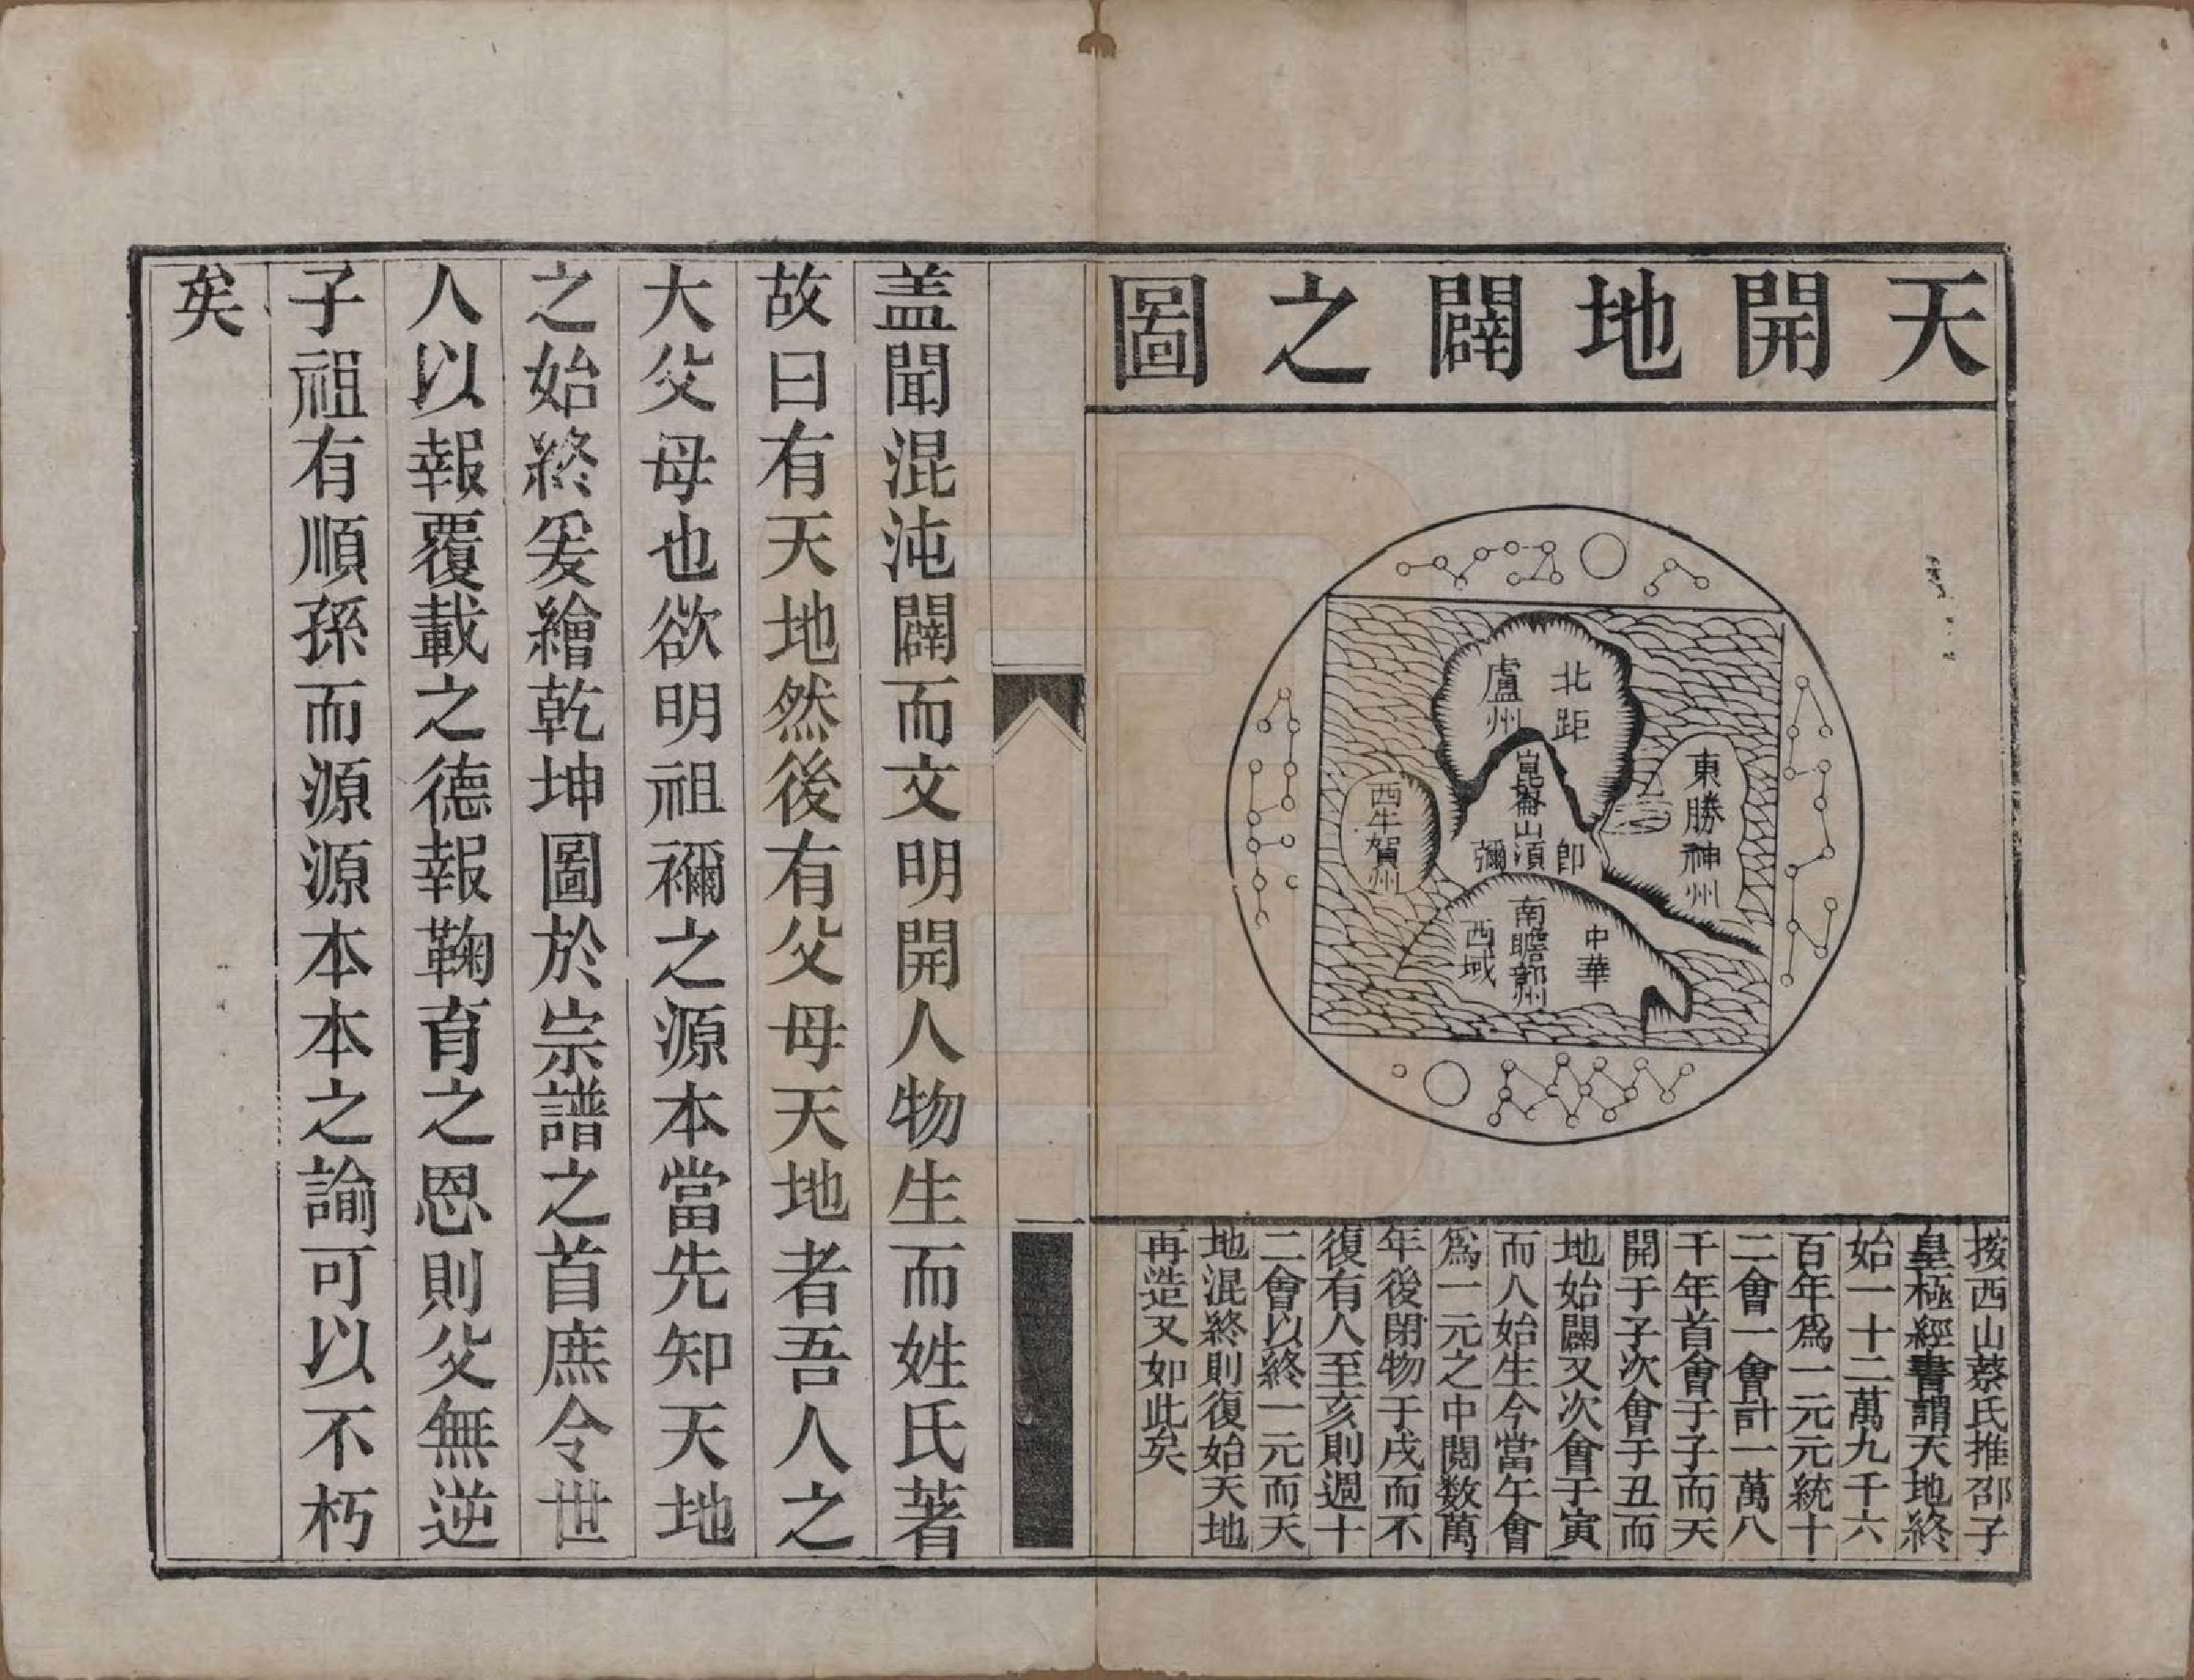 天開地闢之圖
北距
盧州
東勝神州
崑崙山須
即
彌
西牛賀州
中華
南瞻部州
西域
按西山蔡氏推邵子
皇極經書謂天地終
始一十二萬九千六
百年爲一元元統十
二會一會計一萬八
千年首會于子而天
開于子次會于丑而
地始闢又次會于寅
而人始生今當午會
爲一元之中閱数萬
年後閉物于戌而不
復有人至亥則週十
二會以終一元而天
地混終則復始天地
再造又如此矣
盖聞混沌闢而文明開人物生而姓氏著
故曰有天地然後有父母天地者吾人之
大父母也欲明祖禰之源本當先知天地
之始終爰繪乾坤圖於宗譜之首庶令世
人以報覆載之德報鞠育之恩則父無逆
子祖有順孫而源源本本之諭可以不朽
矣